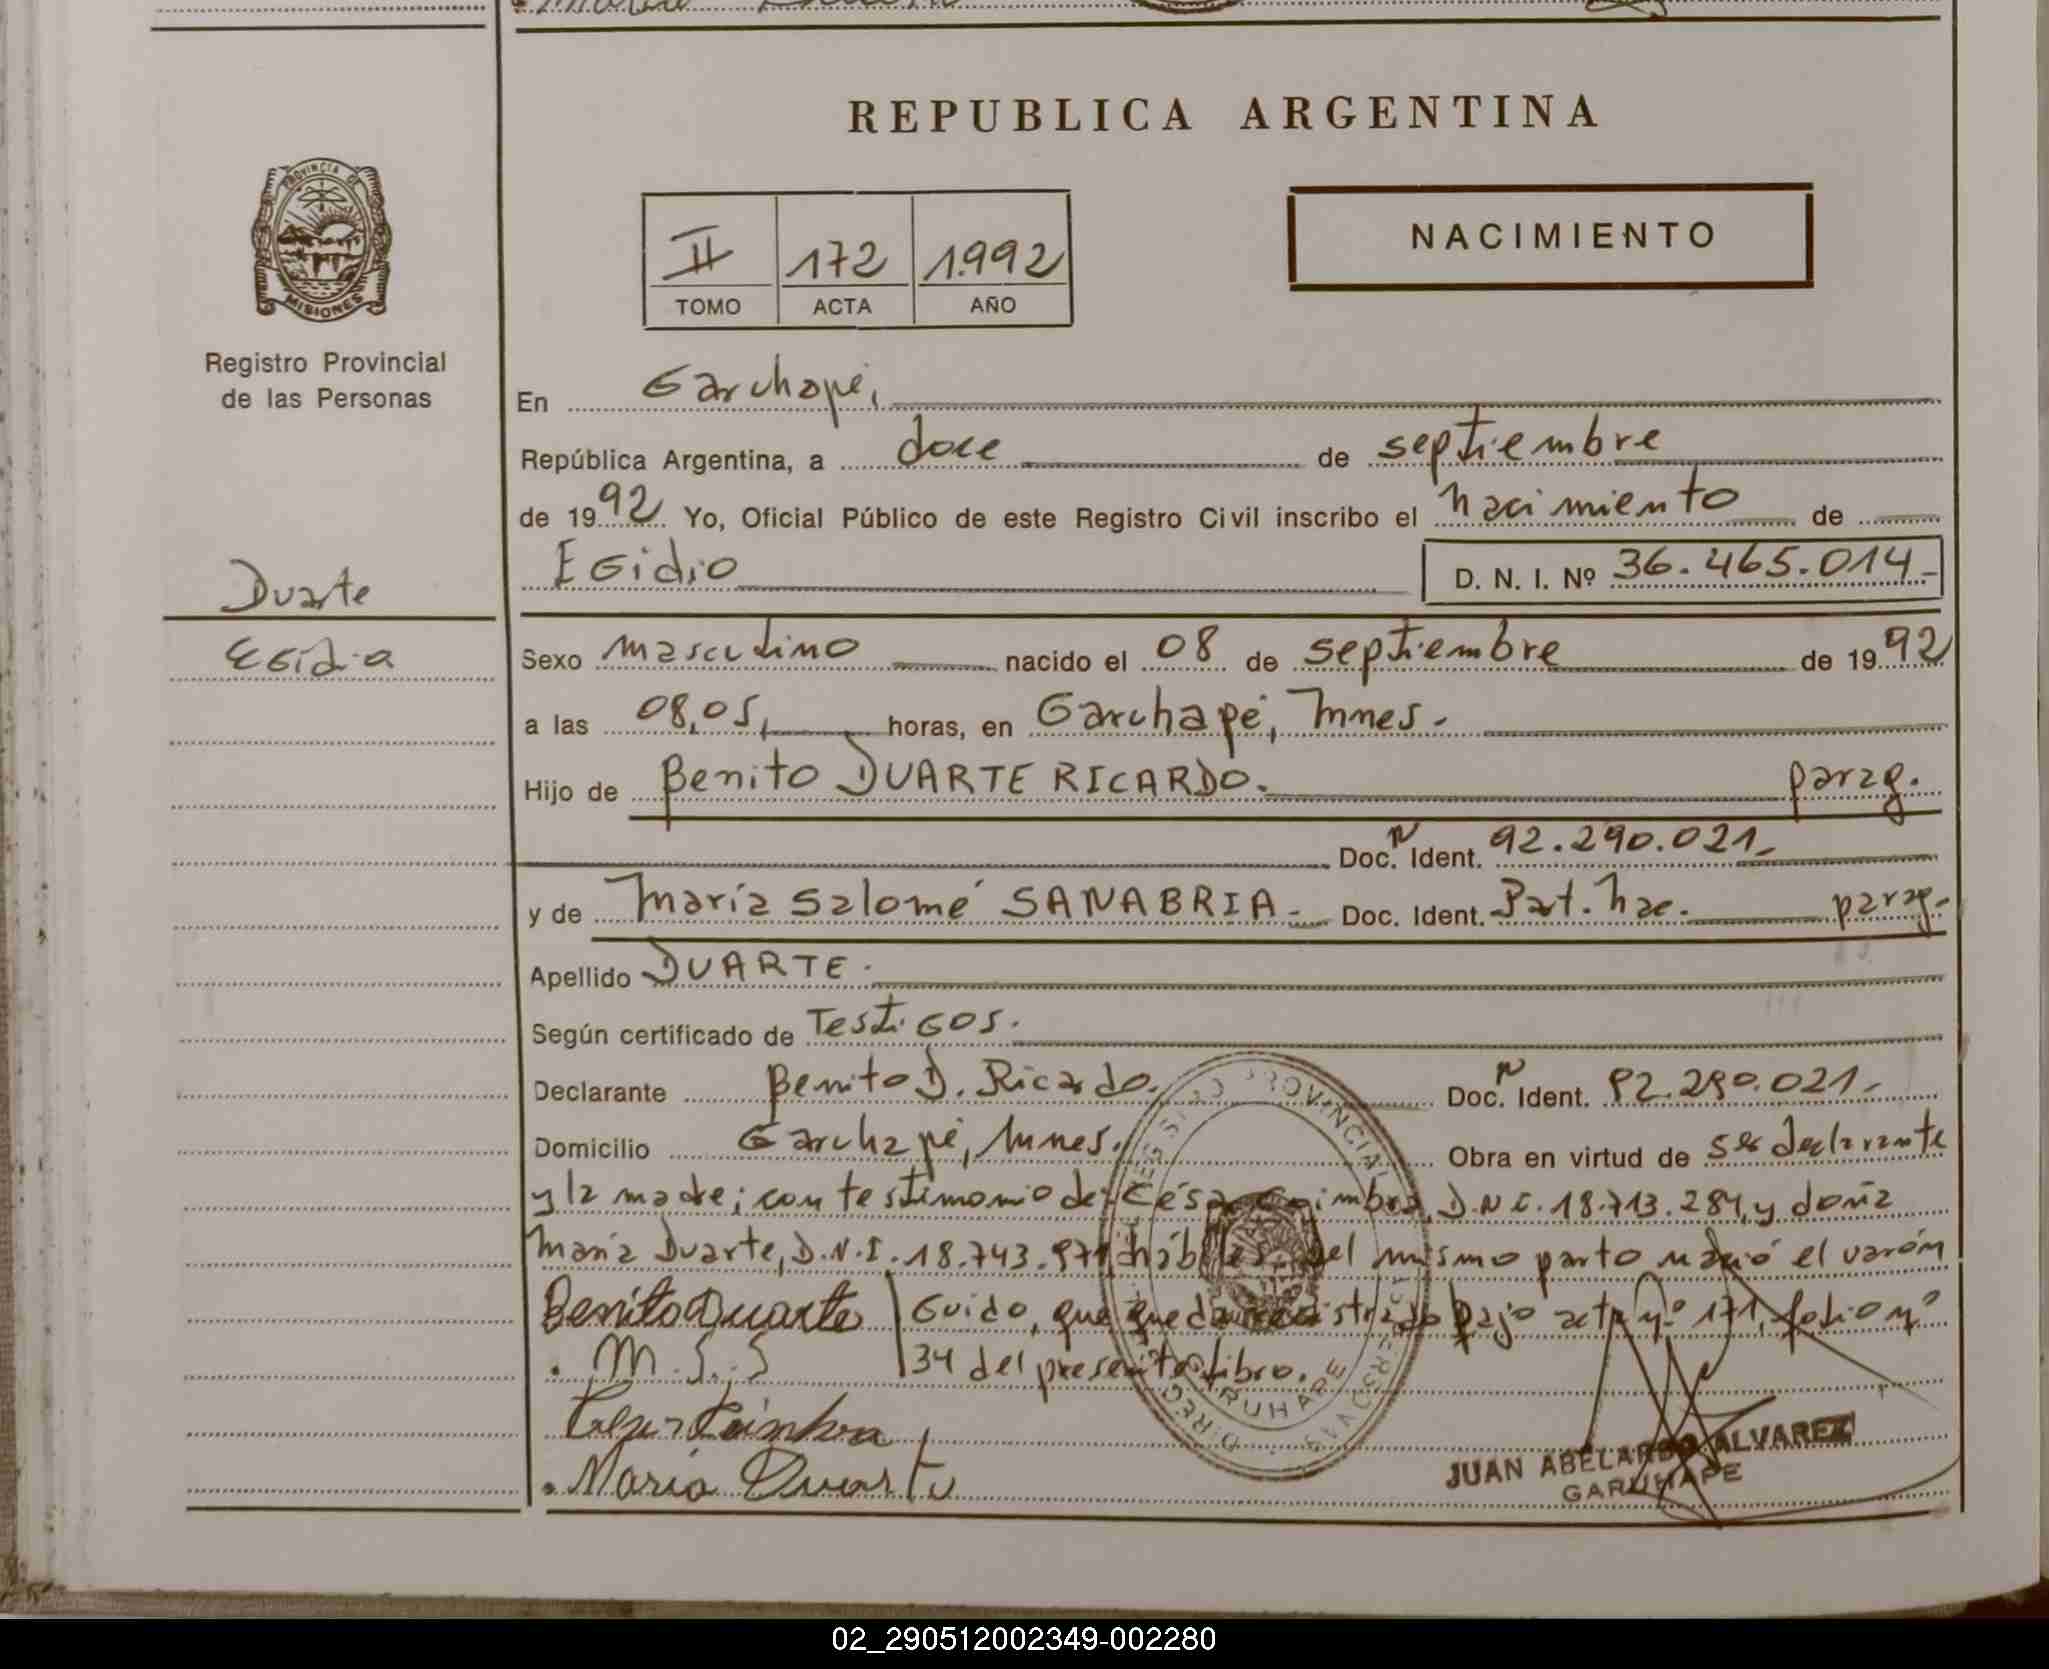 REPUBLICA ARGENTINA
PROVINCIA DE MISIONES
Registro Provincial
de las Personas
II 172 1.992
TOMO ACTA AÑO
NACIMIENTO
En Garuhapé,
República Argentina, a doce de septiembre
de 1992 Yo, Oficial Público de este Registro Civil inscribo el nacimiento de
Egidio D. N. I. Nº 36.465.014-
Duarte
Egidio
Sexo masculino nacido el 08 de septiembre de 1992
a las 08,05, horas, en Garuhapé, Mnes.
Hijo de Benito DUARTE RICARDO. parag.
Doc. N Ident. 92.290.021.
y de María Salomé SANABRIA- Doc. Ident. Part. Nac. parag-
Apellido DUARTE.
Según certificado de Testigos.
Declarante Benito D. Ricardo. Doc. N Ident. 92.290.021.
Domicilio Garuhapé, Mnes. Obra en virtud de ser declarante
y la madre; con testimonio de: César Coimbra, D.N.I. 18.713.284, y doña
María Duarte, D.N.I. 18.743.971, hábiles. Del mismo parto nació el varón
Benito Duarte Guido, que queda registrado bajo acta nº 171, folio nº
. M. S. S 34 del presente libro.
Cesar Coimbra
. Maria Duarte
REGISTRO PROVINCIAL DE LAS PERSONAS
GARUHAPE
JUAN ABELARDO ALVAREZ
GARUHAPE
02_290512002349-002280